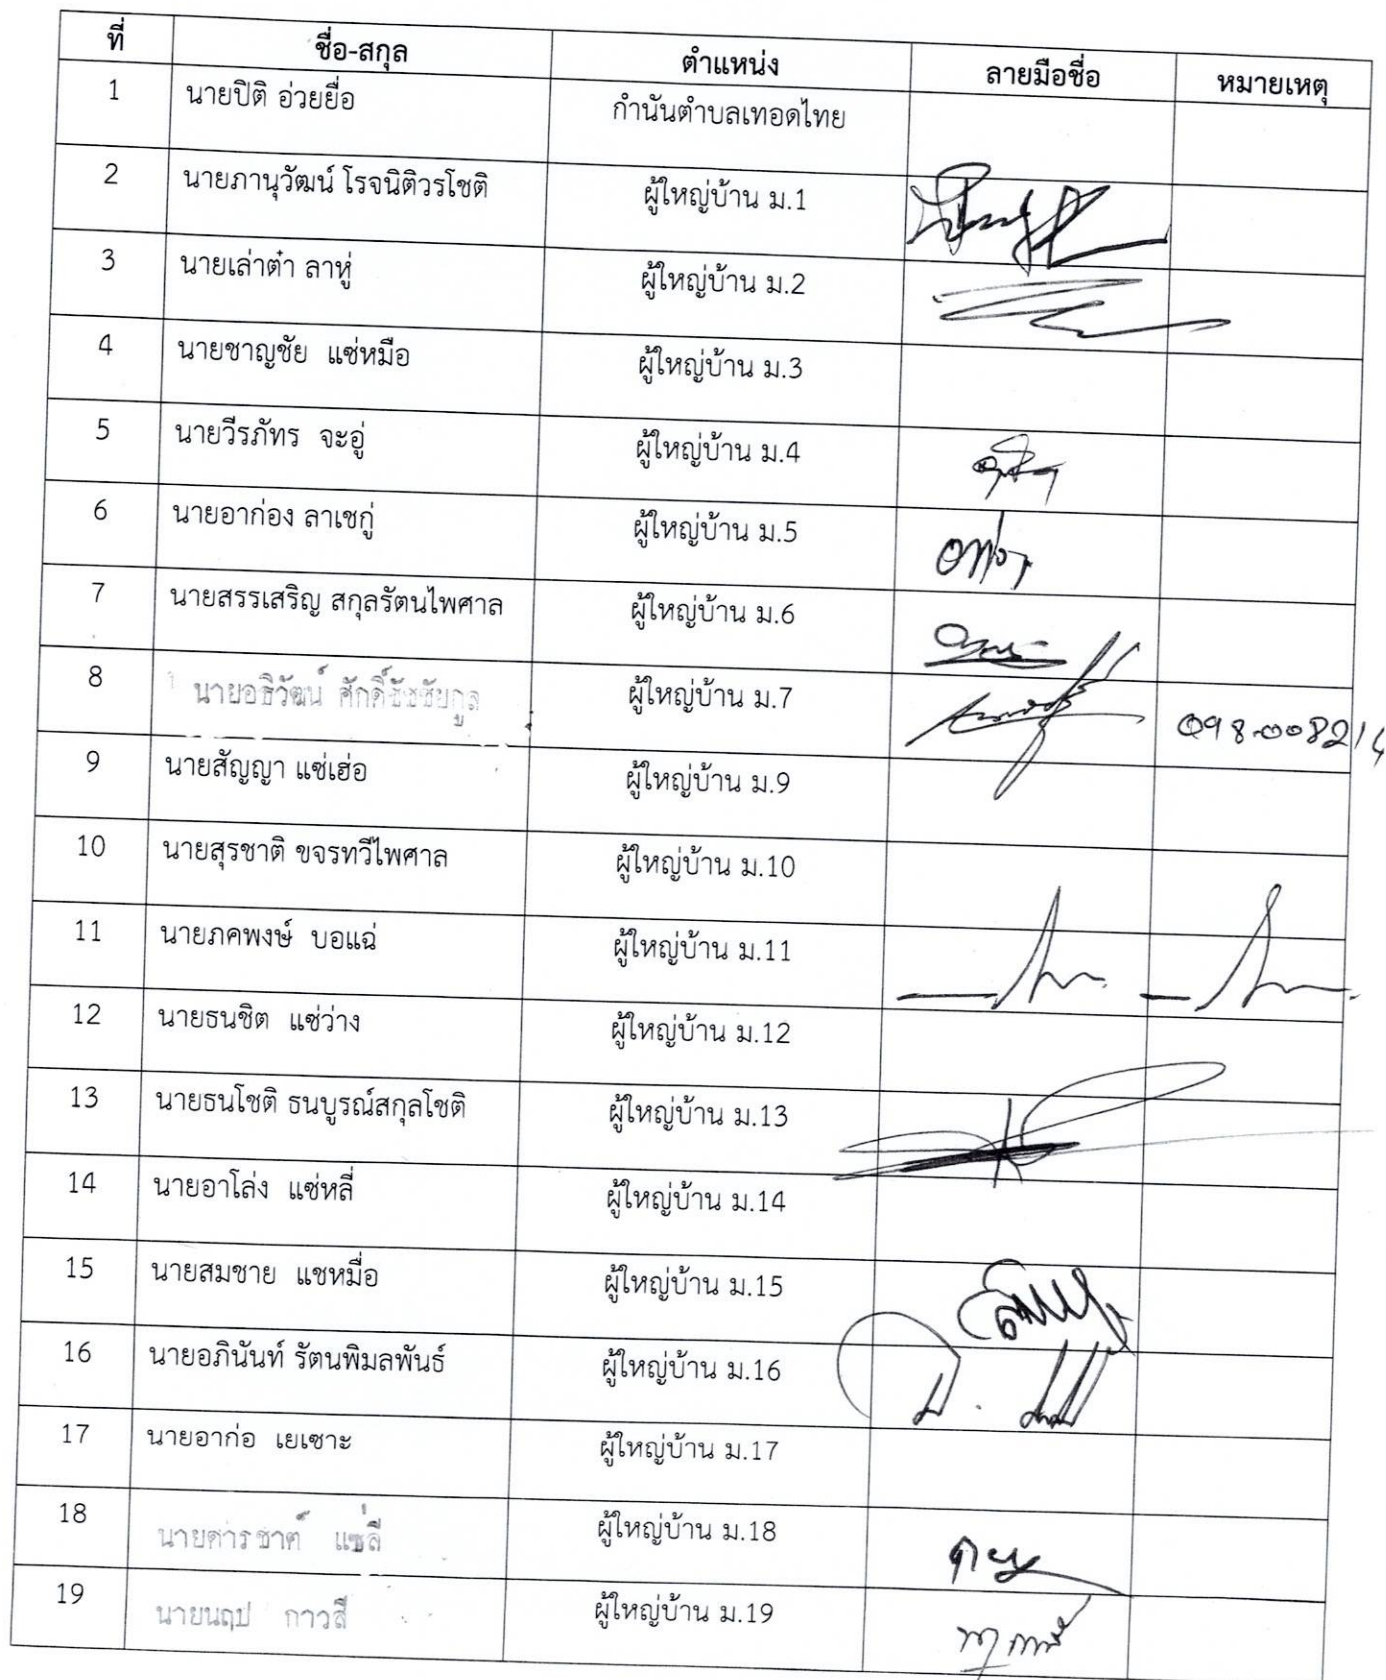 ที่ ชื่อ-สกุล ตำแหน่ง ลายมือชื่อ หมายเหตุ
1 นายปิติ อ่วยยื่อ กำนันตำบลเทอดไทย
2 นายภานุวัฒน์ โรจนิติวรโชติ ผู้ใหญ่บ้าน ม.1
3 นายเล่าต๋า ลาหู่ ผู้ใหญ่บ้าน ม.2
4 นายชาญชัย แซ่หมือ ผู้ใหญ่บ้าน ม.3
5 นายวีรภัทร จะอู่ ผู้ใหญ่บ้าน ม.4
6 นายอาก่อง ลาเชกู่ ผู้ใหญ่บ้าน ม.5
7 นายสรรเสริญ สกุลรัตนไพศาล ผู้ใหญ่บ้าน ม.6
8 นายอธิวัฒน์ ศักดิ์ธัชชัยกูล ผู้ใหญ่บ้าน ม.7 098-008214
9 นายสัญญา แซ่เฮ่อ ผู้ใหญ่บ้าน ม.9
10 นายสุรชาติ ขจรทวีไพศาล ผู้ใหญ่บ้าน ม.10
11 นายภคพงษ์ บอแฉ่ ผู้ใหญ่บ้าน ม.11
12 นายธนชิต แซ่ว่าง ผู้ใหญ่บ้าน ม.12
13 นายธนโชติ ธนบูรณ์สกุลโชติ ผู้ใหญ่บ้าน ม.13
14 นายอาโล่ง แซ่หลี่ ผู้ใหญ่บ้าน ม.14
15 นายสมชาย แชหมื่อ ผู้ใหญ่บ้าน ม.15
16 นายอภินันท์ รัตนพิมลพันธ์ ผู้ใหญ่บ้าน ม.16
17 นายอาก่อ เยเซาะ ผู้ใหญ่บ้าน ม.17
18 นายดารชาต์ แซ่ลี ผู้ใหญ่บ้าน ม.18
19 นายนฤป กาวสี ผู้ใหญ่บ้าน ม.19